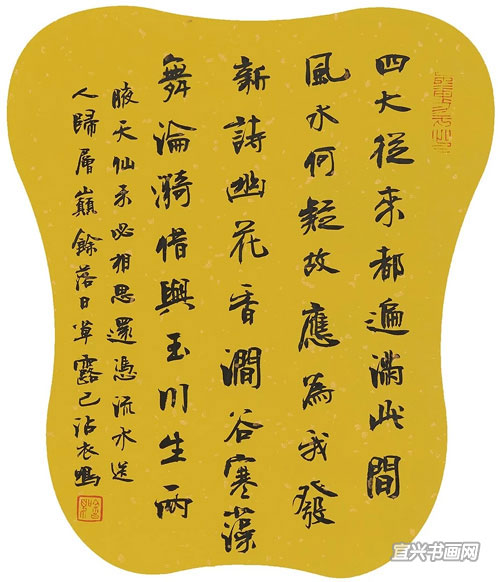 四大從来都遍滿此間
風水何疑故應為我發
新詩幽花香澗谷寒藻
舞淪漪借與玉川生兩
腋天仙未必相思還憑流水送
人歸層巔餘落日草露已沾衣
宜兴书画网